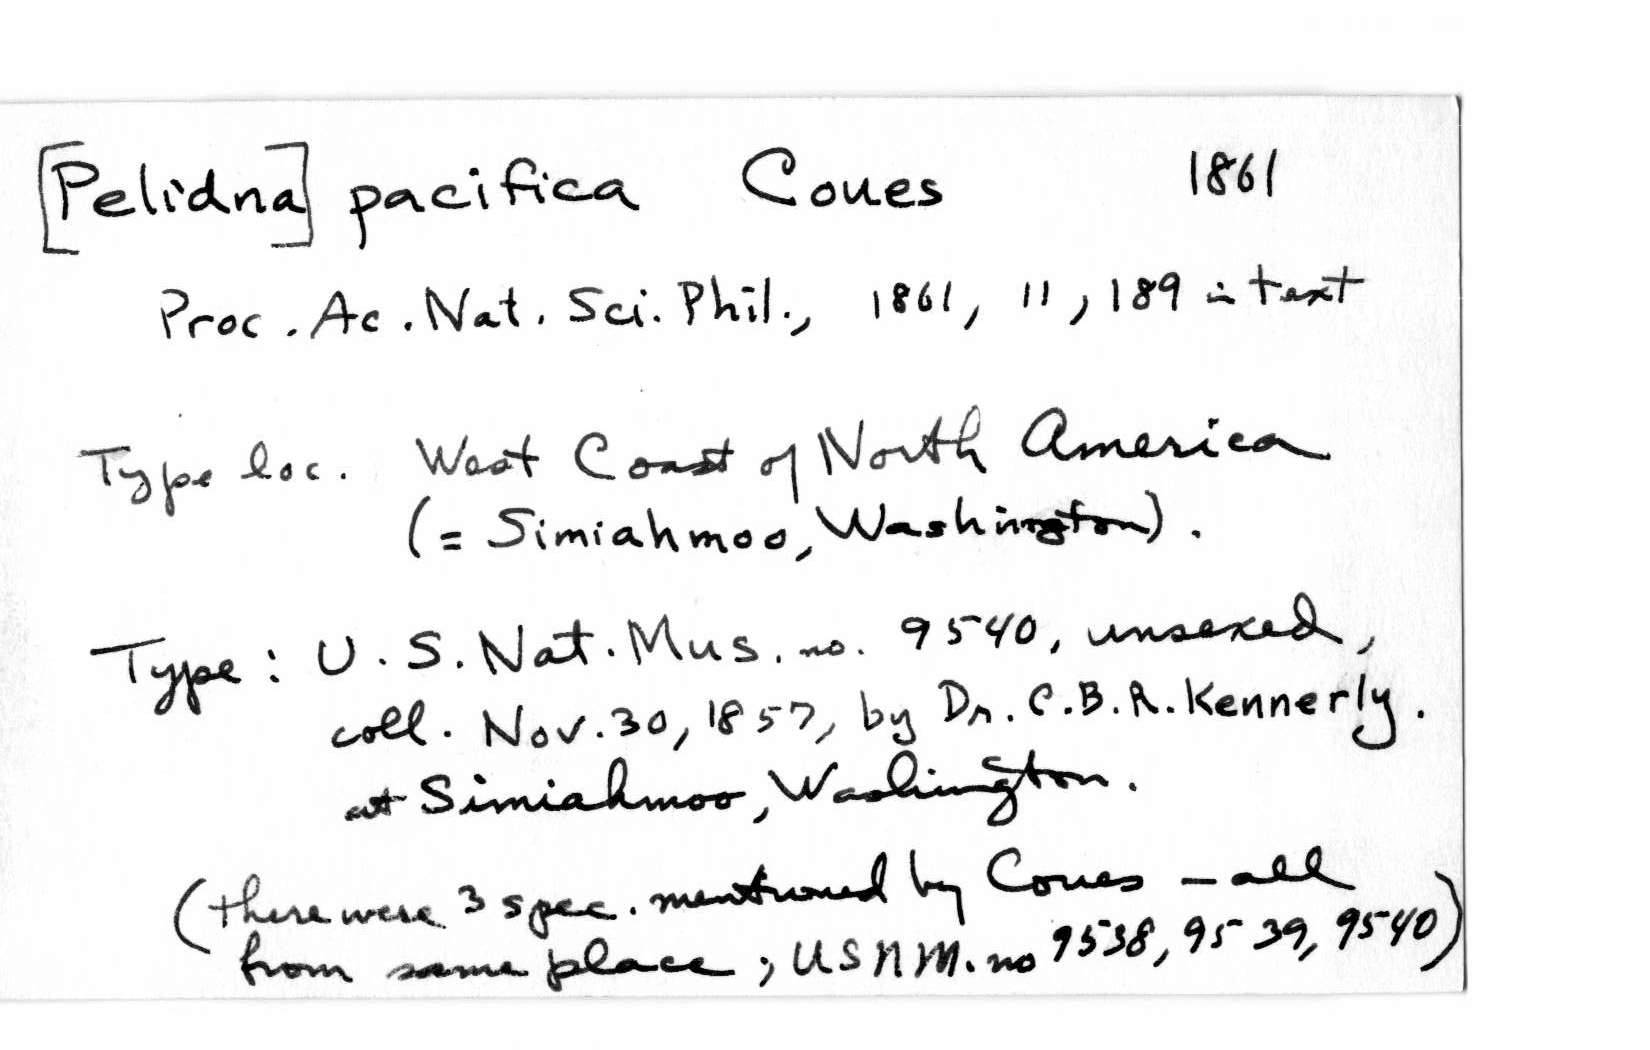 [Pelidna] pacifica Coues 1861
Proc. Ac. Nat. Sci. Phil., 1861, 11, 189 in text
Type loc. West Coast of North America
(= Simiahmoo, Washington).
Type: U.S. Nat. Mus. no. 9540, unsexed,
coll. Nov. 30, 1857, by Dr. C.B.R. Kennerly.
at Simiahmoo, Washington.
(there were 3 spec. mentioned by Coues – all
from same place; USNM. no 9538, 9539, 9540)